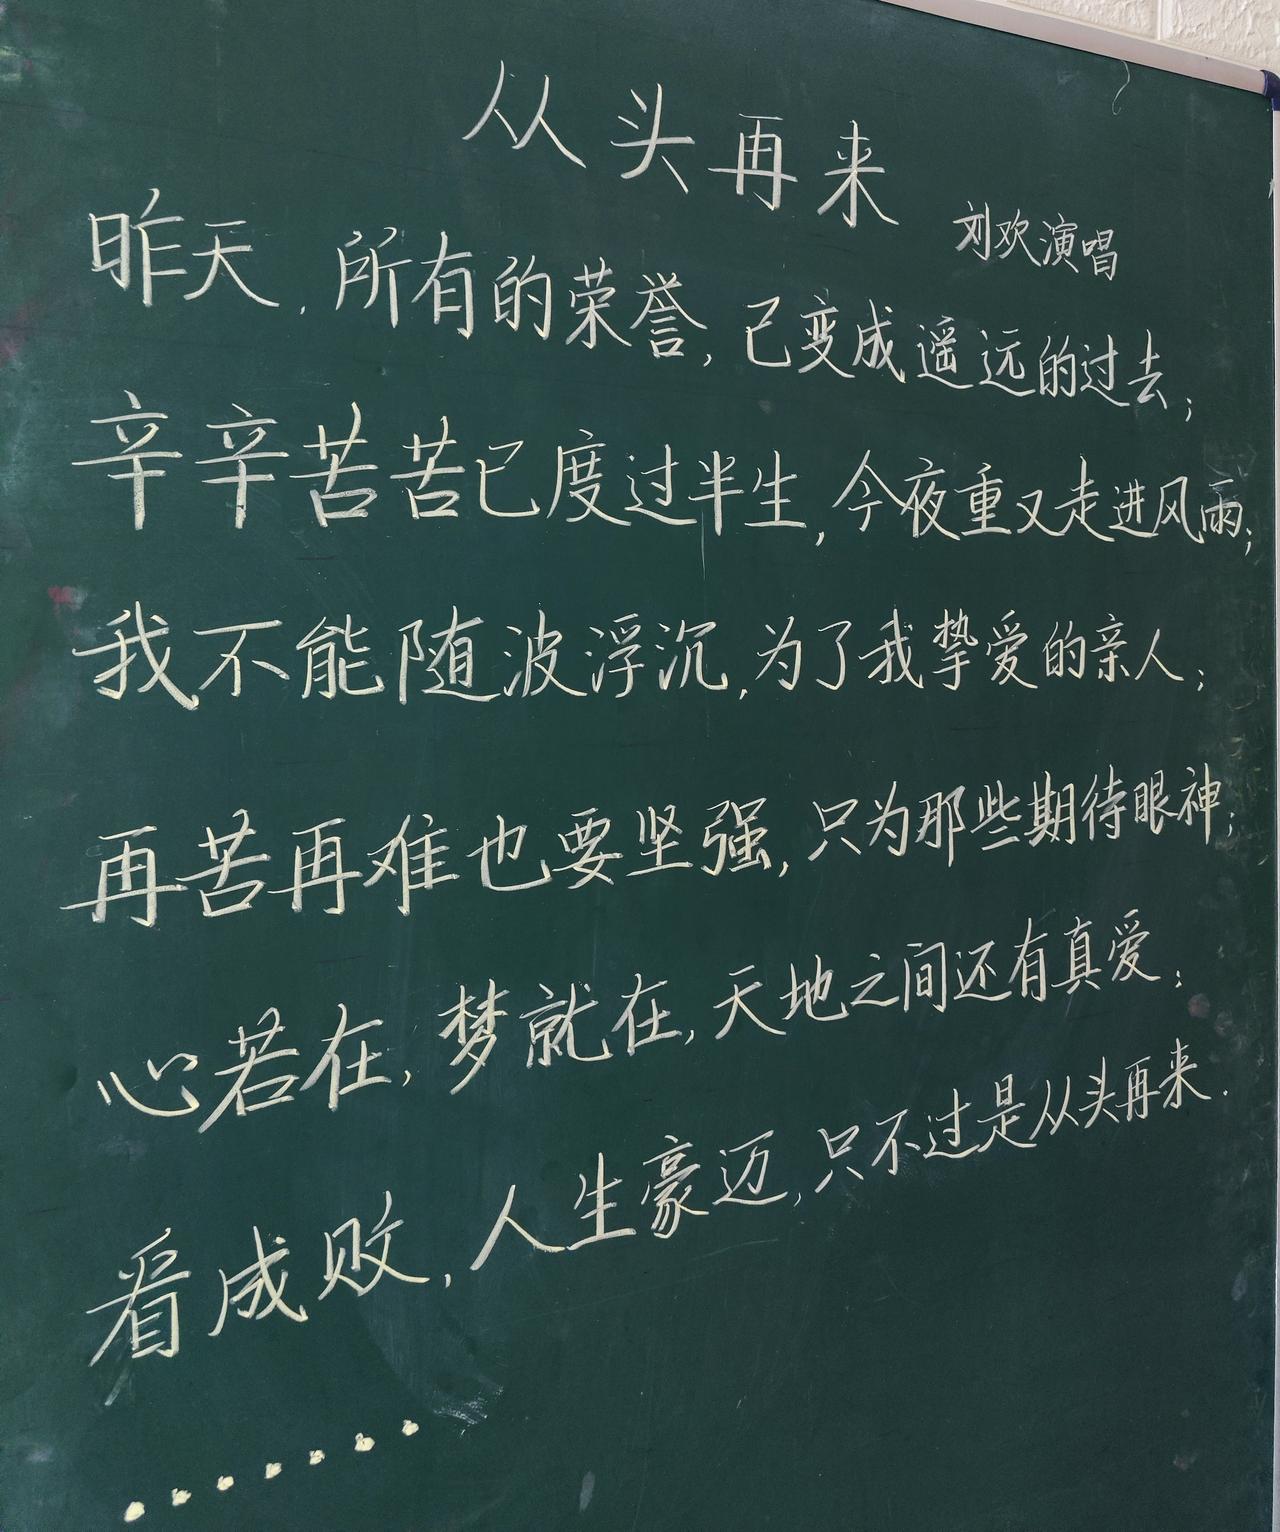 从头再来
刘欢演唱
昨天,所有的荣誉,已变成遥远的过去;
辛辛苦苦已度过半生,今夜重又走进风雨;
我不能随波浮沉,为了我挚爱的亲人;
再苦再难也要坚强,只为那些期待眼神;
心若在,梦就在,天地之间还有真爱;
看成败,人生豪迈,只不过是从头再来.
.......